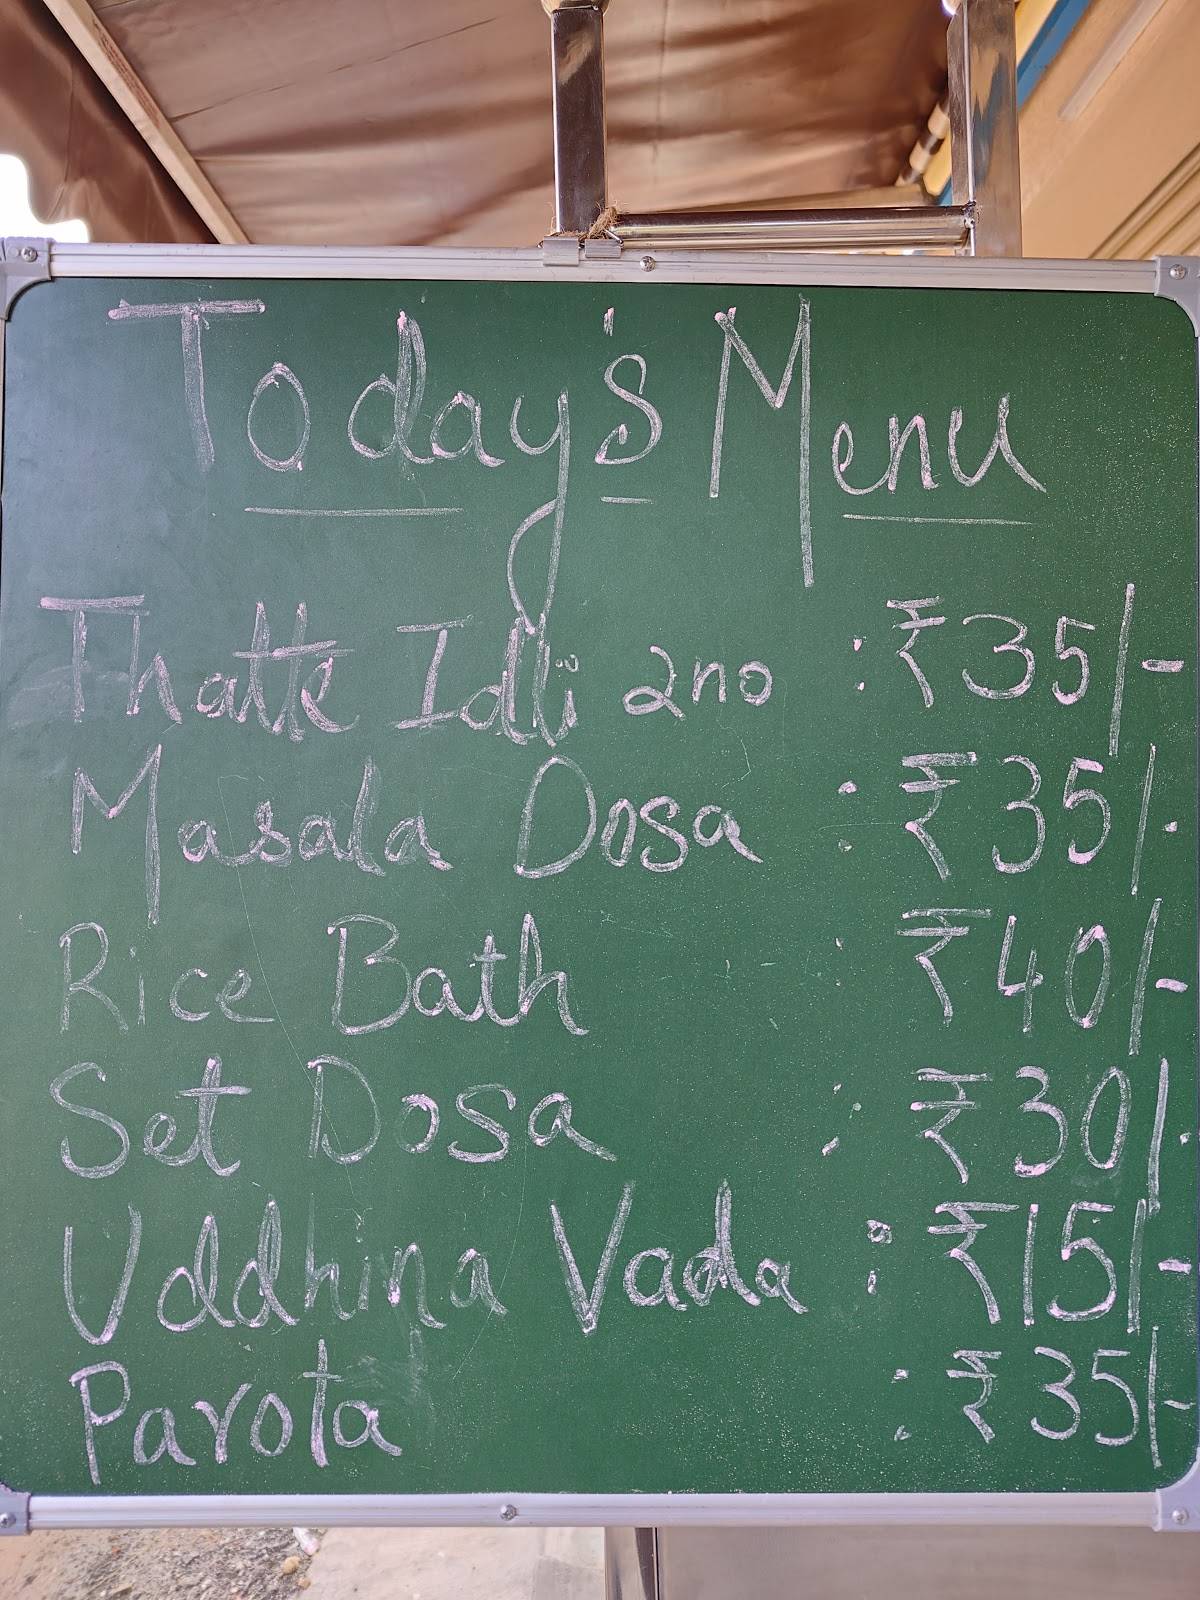 Today's Menu
Thatte Idli 2no : ₹35/-
Masala Dosa : ₹35/-
Rice Bath : ₹40/-
Set Dosa : ₹30/-
Uddhina Vada : ₹15/-
Parota : ₹35/-